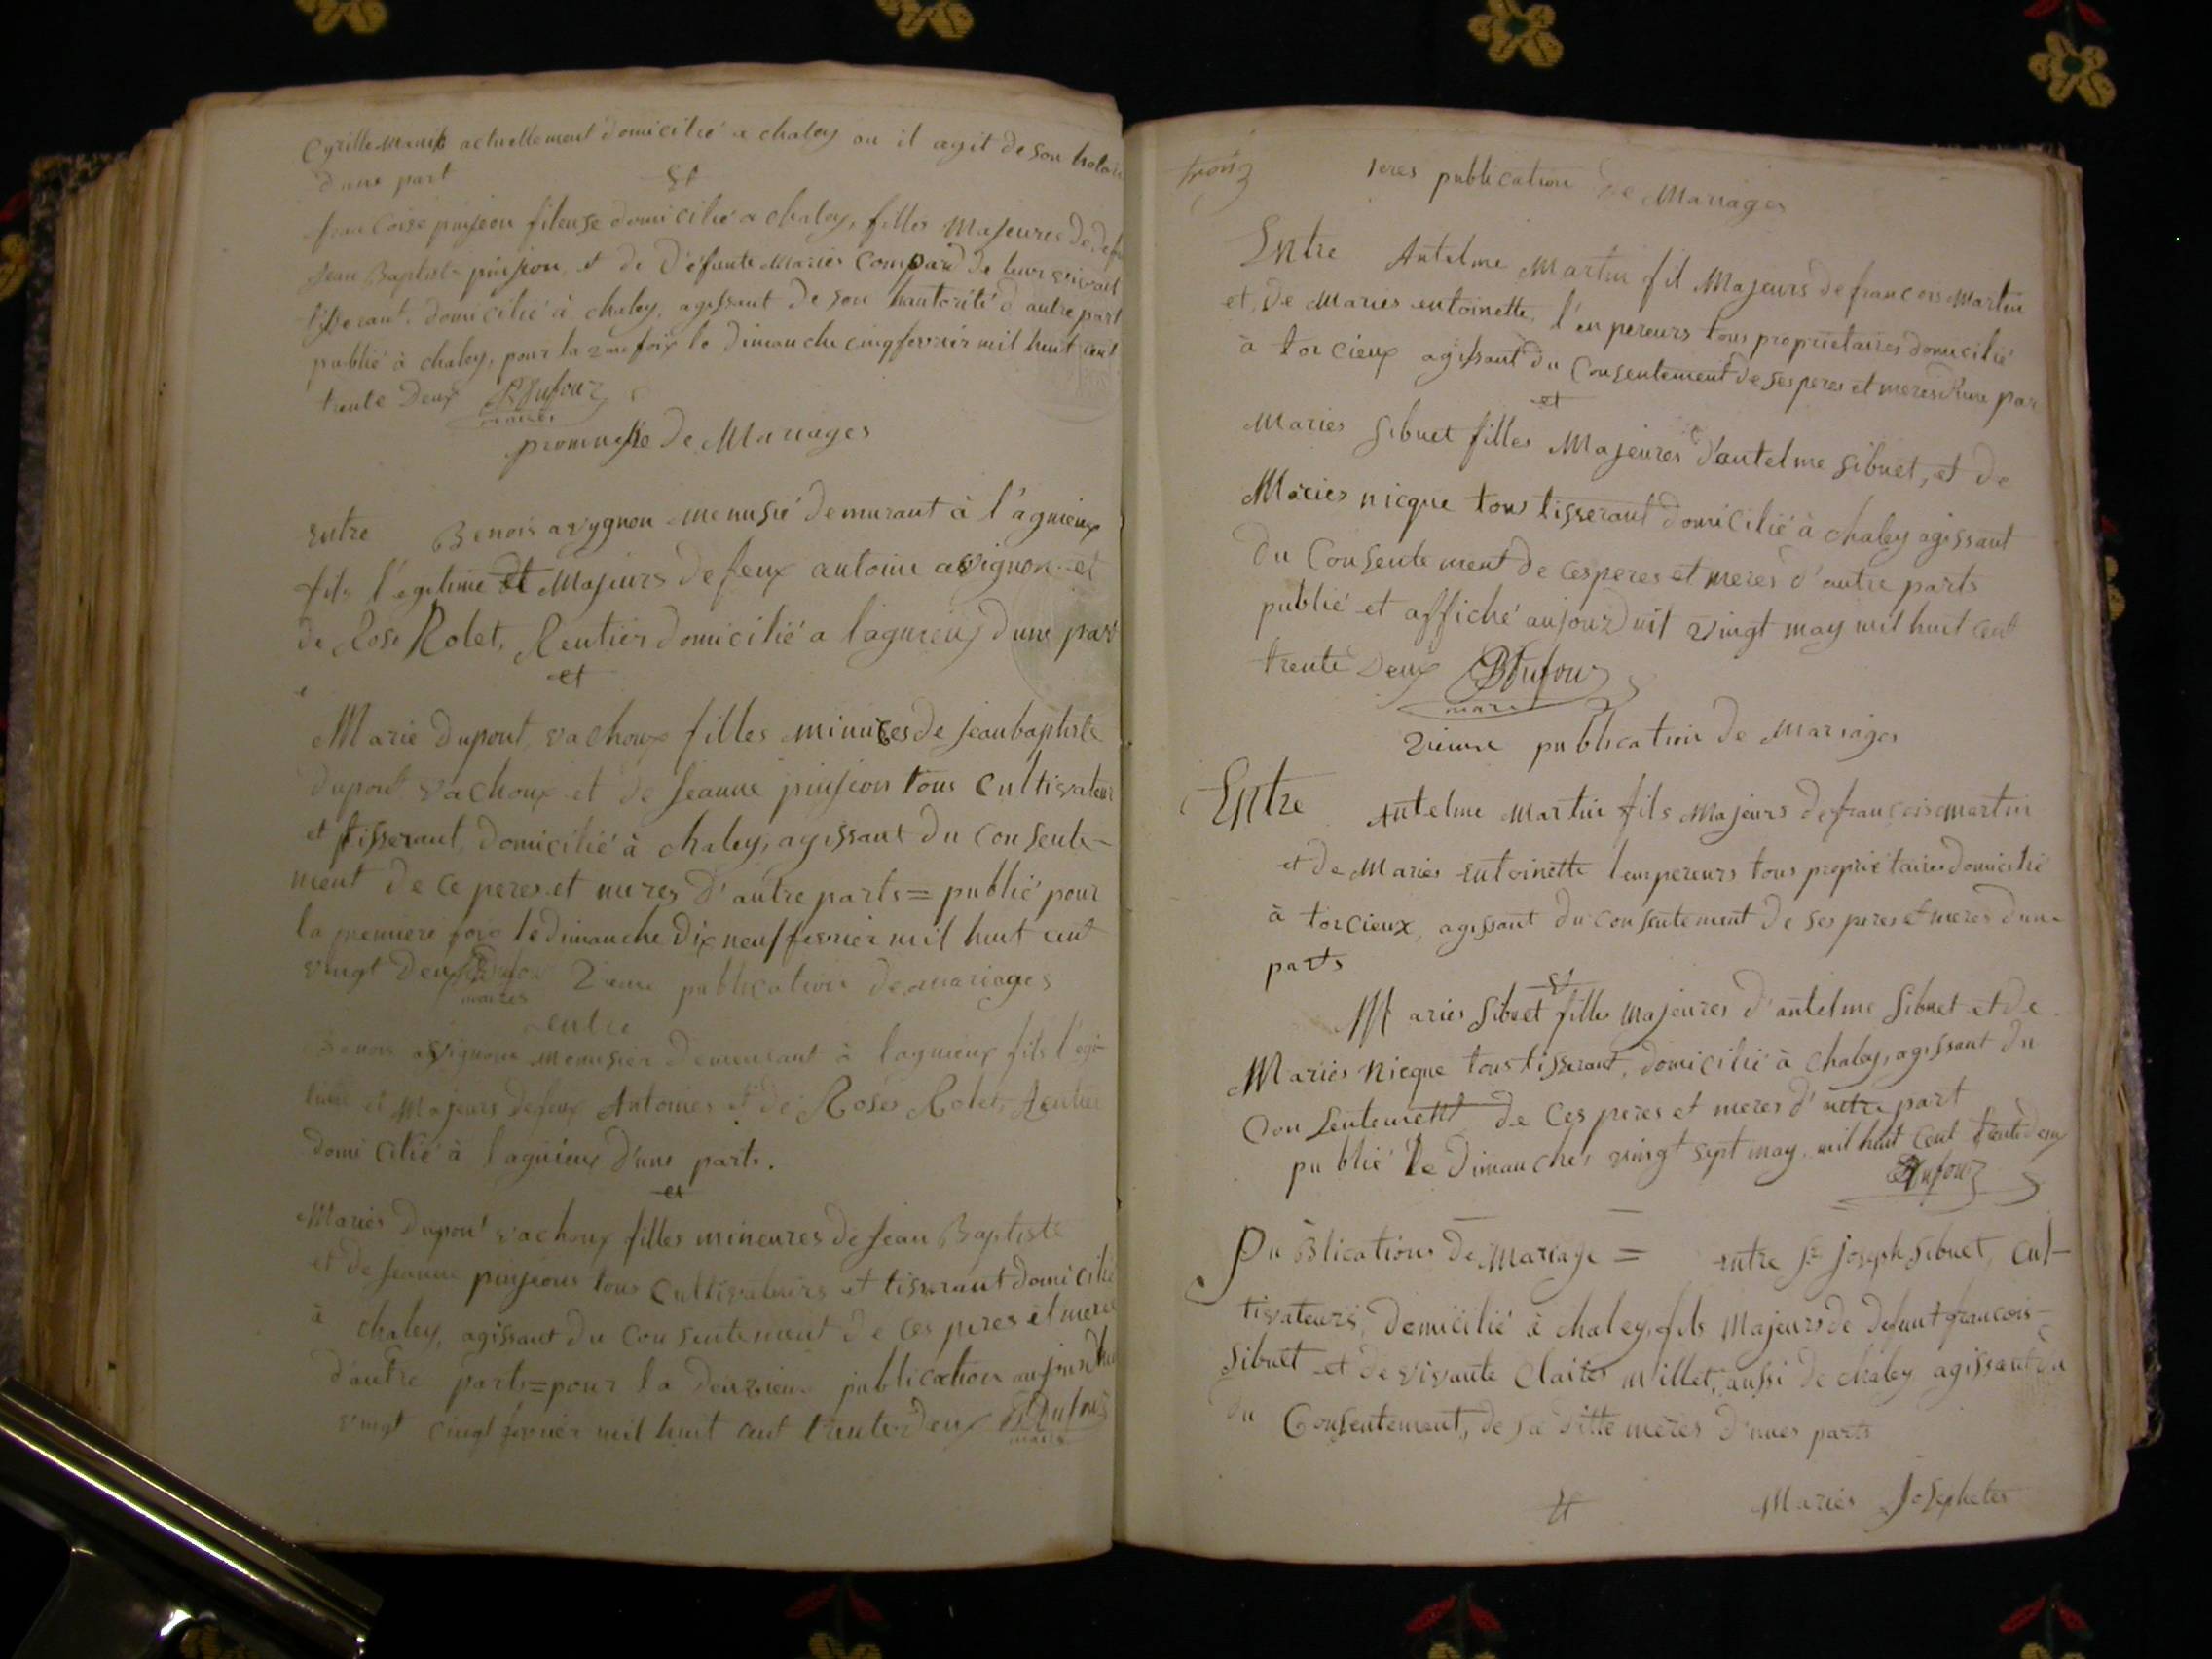 Cyrille Manik actuellement domicilié a chaley ou il agit de son
d'une part
Et
francoise pinjeon fileuse domicilié a chaley, filles Majeures de
Jean Baptiste pinjeon, et de Défunte Maries Compard de leur vivant
tisserant, domicilié à chaley, agissant de son hautorité d'autre part
publié à chaley, pour la 2me foix le Dimanche cinq fevrier mil huit cent
trente Deux BDufour
maires
promesse De Mariages
Entre Benois avygnon menusié demurant à l'agnieux
fils l'égetime et Majeurs de feux antoine avignon et
de Rose Rolet, Rentier domicilié a lagnieux d'une part
et
Marie Dupont vachoux filles minures de jean baptiste
dupont vachoux et de jeanne pinjeon tous cultivateur
et tisserant, domicilié à chaley, agissant du consente-
ment de ce peres et meres d'autre parts = publié pour
la premiere foix le dimanche Dix neuf fevrier mil huit cent
vingt deux BDufour 2ieme publication de mariages
maires
entre
Benois avignon menusier demeurant à lagnieux fils l'egi-
time et Majeurs de feux Antoines et de Roses Rolet, Rentier
domicilié à lagnieux d'une parts.
et
Maries Dupont vachoux filles mineures de jean Baptiste
et de jeanne pinjeons tous cultivateurs et tisserant domicilié
à chaley, agissant du consentement de ces peres et meres
d'autre parts = pour la deuxieme publication aujourdhui
vingt cinq fevrier mil huit cent trente deux BDufour
maire
1eres publication de Mariages
Entre Antelme Martin fil Majeurs de francois Martin
et, de Maries entoinette, l'enpereurs tous proprietaires domicilié
à torcieux agissant du Consentement de ses peres et meres d'une par
et
Maries Sibuet filles Majeures d'antelme Sibuet, et de
Maries nicque tous tisserant domicilié à chaley agissant
du Consentement de ces peres et meres d'autre parts
publié et affiché aujourduit vingt may mil huit cent
trente Deux BDufour
maire
2ieme publication de Mariages
Entre Antelme Martin fils Majeurs de francois martin
et de Maries entoinette lempereurs tous proprietaires domicilié
à torcieux, agissant du consentement de ses peres et meres d'une
parts
et
Maries Sibuet filles majeures d'antelme Sibuet et de
Maries Nicque tous tisserant, domicilié à chaley, agissant du
Consentement de Ces peres et meres d'autre part
publié le Dimanches vingt sept may mil huit cent trente deux
BDufour
PuBlications de Mariage = entre Sr joseph Sibuet, cul-
tivateurs, domicilié à chaley, fils Majeurs de defunt francois
Sibuet et de vivante Claires millet, aussi de chaley agissant du
du Consentement, de sa ditte meres d'unes parts
et Maries Josephetes